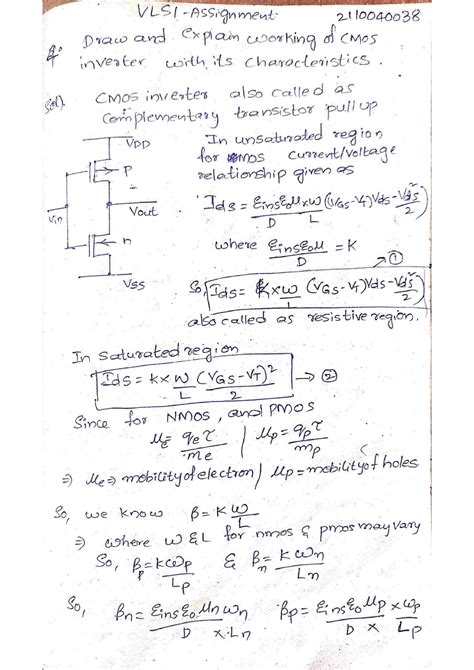 VLSI-Assignment 2110040038
Q. Draw and explain working of CMOS
inverter with its characteristics.
Sol). CMOS inverter also called as
complementary transistor pull up
VDD
P
Vin
Vout
n
VSS
In unsaturated region
for nmos current/voltage
relationship given as
Ids = εins ε0 μ × w/D L ((VGS - VT) Vds - Vds²/2)
where εins ε0 μ/D = K
So, Ids = K × w/L (VGS - VT) Vds - Vds²/2) → ①
also called as resistive region.
In saturated region
Ids = K × w/L (VGS - VT)²/2 → ②
Since for NMOS, and PMOS
μe = qe τ/me / μp = qp τ/mp
⇒ μe ⇒ mobility of electron / μp = mobility of holes
So, we know β = K w/L
⇒ where W & L for nmos & pmos may vary
So, βp = K wp/Lp & βn = K wn/Ln
So, βn = εins ε0 μn wn/D × Ln βp = εins ε0 μp × wp/D × Lp